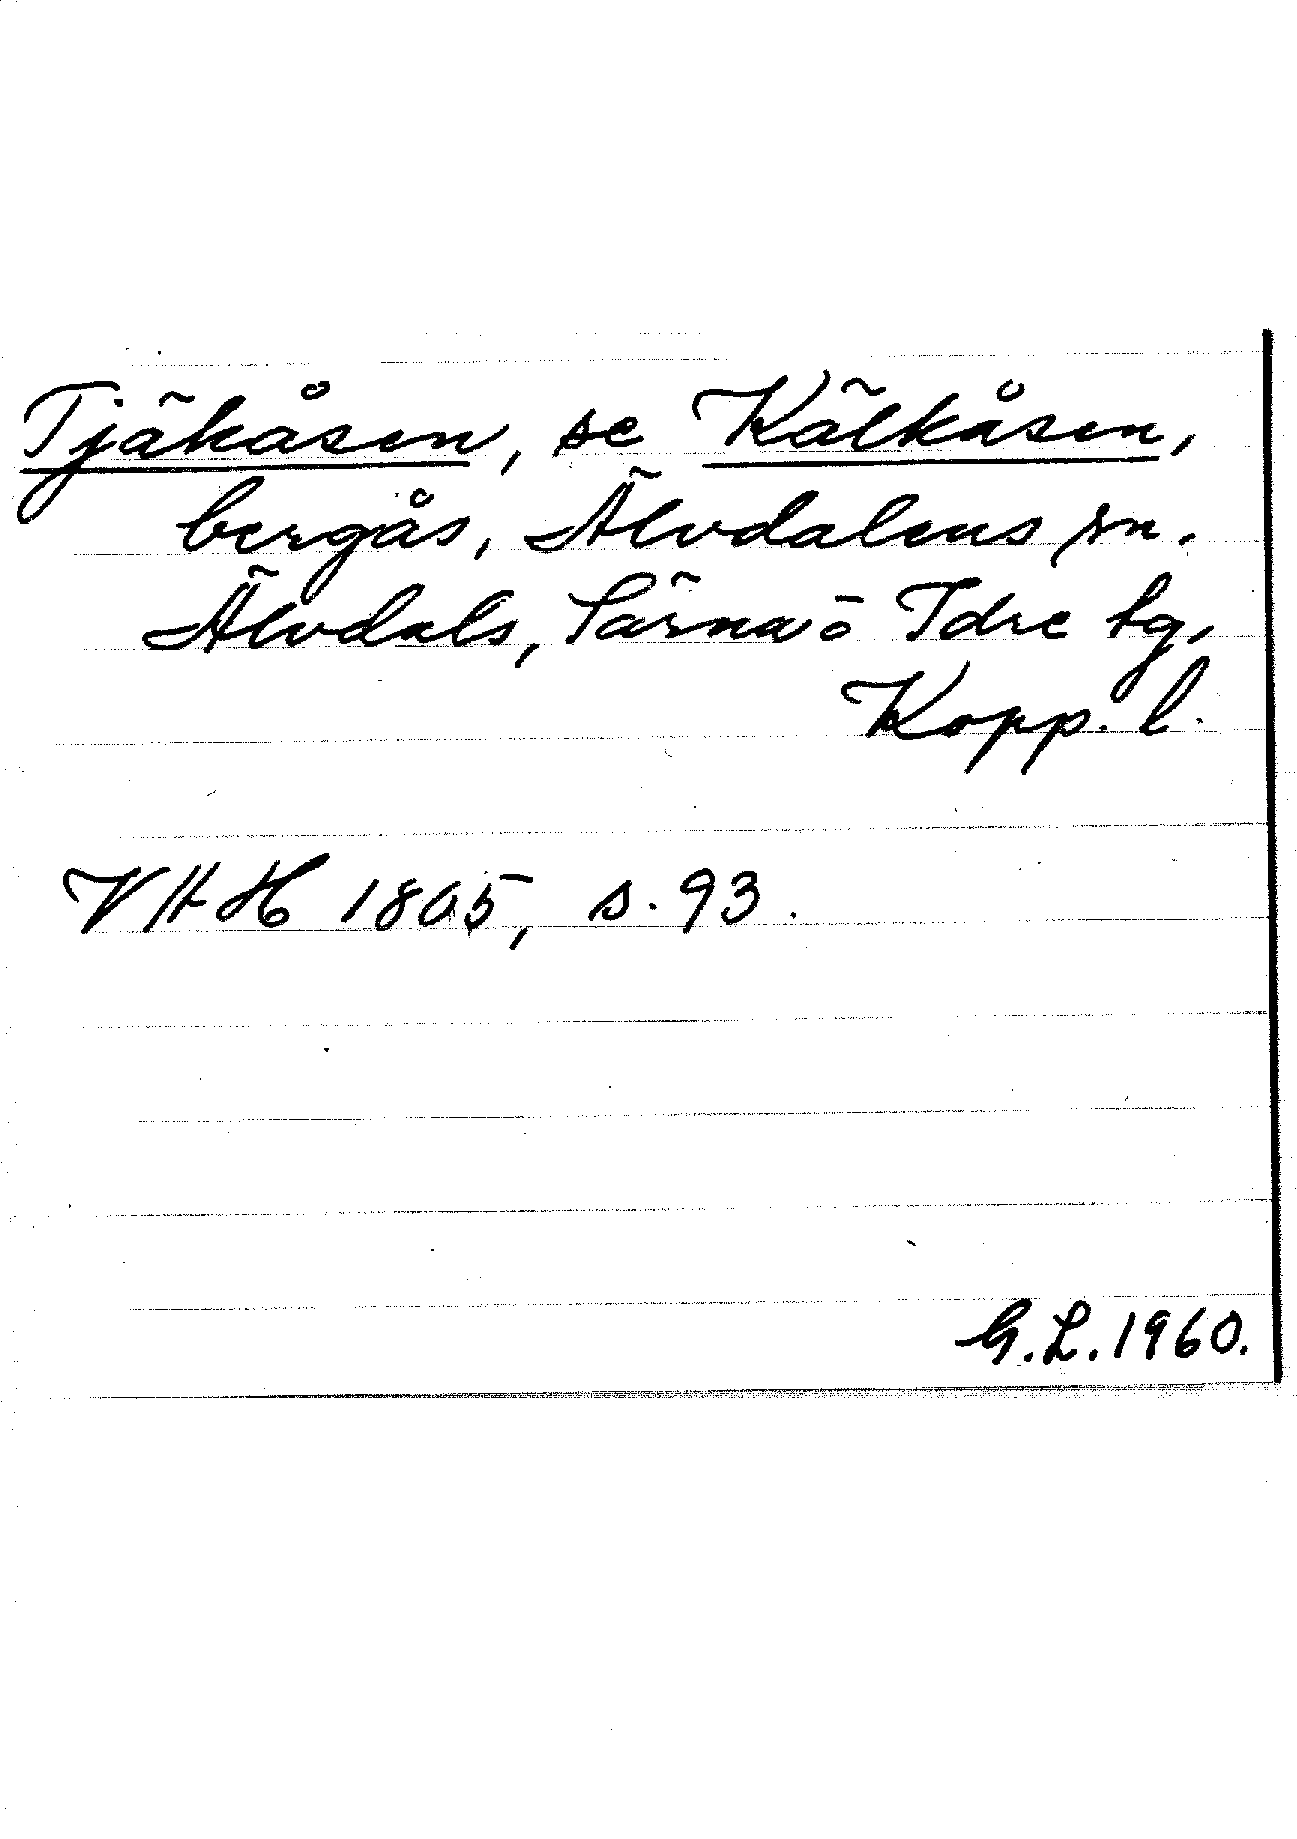 Tjäkåsen, se Kälkåsen,
bergås, Älvdalens sn.
Älvdals, Särna o Idre tg,
Kopp. l.
VHH 1805, s. 93.
G.L. 1960.